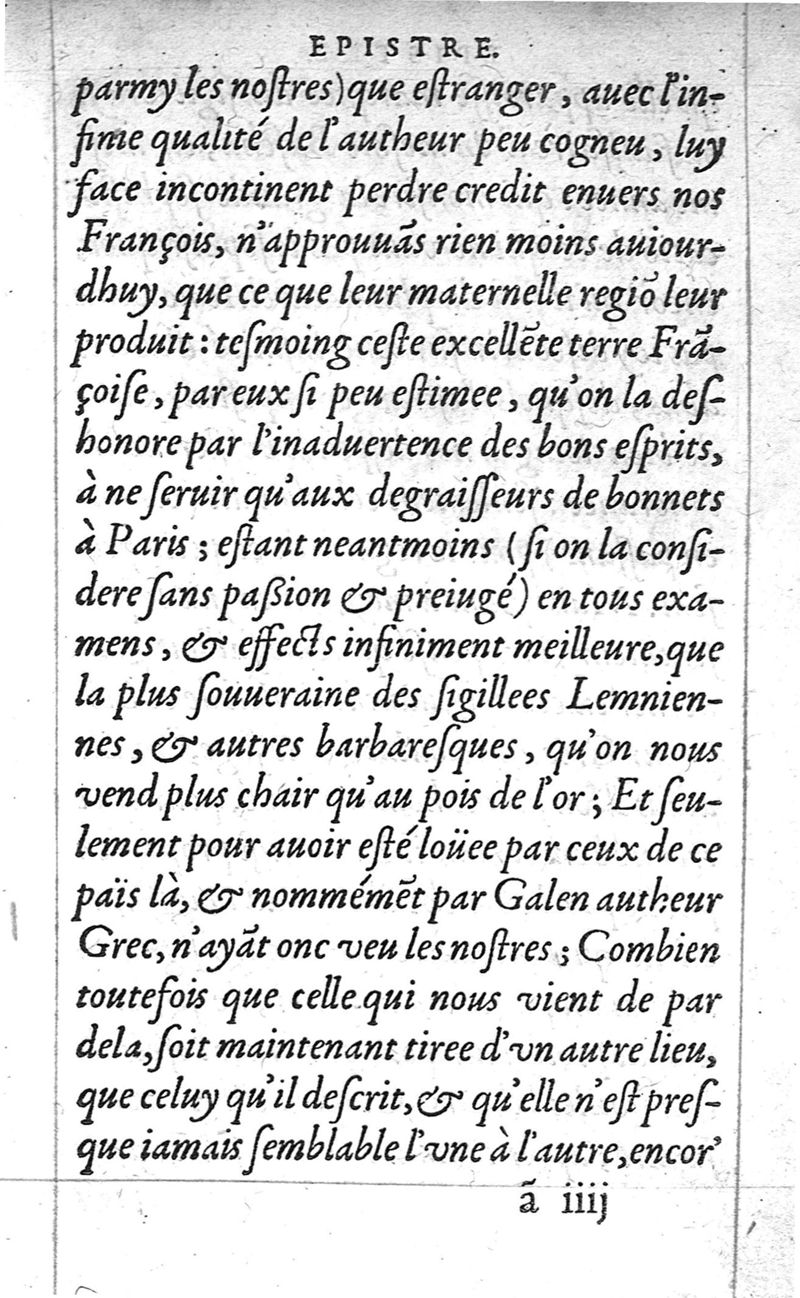 EPISTRE.
parmy les noſtres) que eſtranger, auec l'in-
fime qualité de l'autheur peu cogneu, luy
face incontinent perdre credit enuers nos
François, n'approuuãs rien moins auiour-
dhuy, que ce que leur maternelle regiõ leur
produit : teſmoing ceſte excellẽte terre Frã-
çoiſe, par eux ſi peu eſtimee, qu'on la deſ-
honore par l'inaduertence des bons eſprits,
à ne ſeruir qu'aux degraiſſeurs de bonnets
à Paris ; eſtant neantmoins (ſi on la conſi-
dere ſans paßion & preiugé) en tous exa-
mens, & effects infiniment meilleure, que
la plus ſouueraine des ſigillees Lemnien-
nes, & autres barbareſques, qu'on nous
vend plus chair qu'au pois de l'or ; Et ſeu-
lement pour auoir eſté loüee par ceux de ce
païs là, & nommémẽt par Galen autheur
Grec, n'ayãt onc veu les noſtres ; Combien
toutefois que celle qui nous vient de par
dela, ſoit maintenant tiree d'vn autre lieu,
que celuy qu'il deſcrit, & qu'elle n'eſt preſ-
que iamais ſemblable l'vne à l'autre, encor'
ã iiij